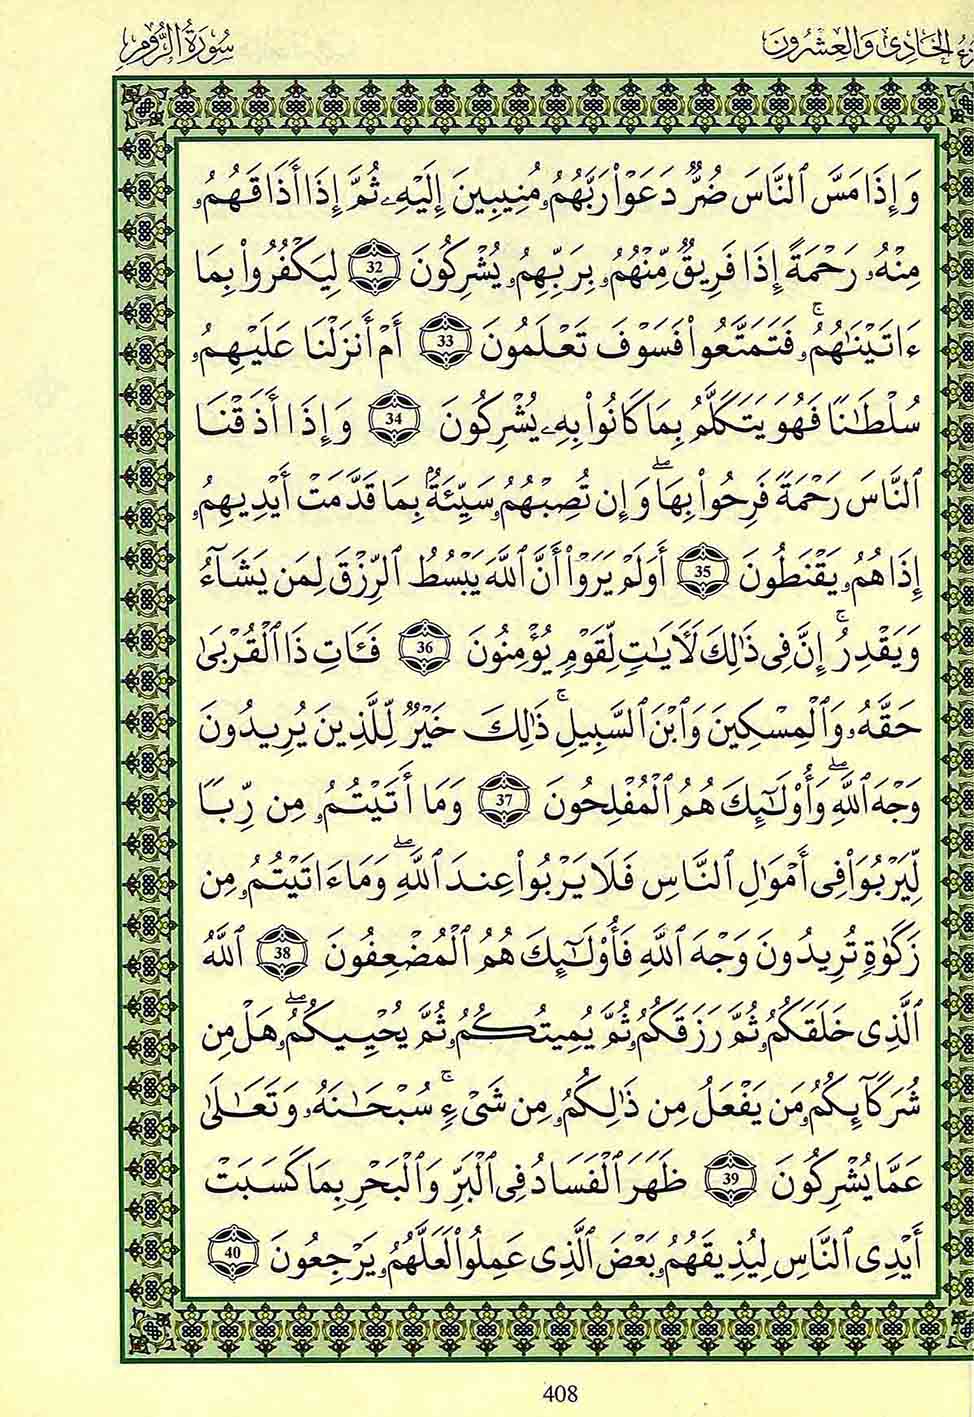 الجزء الحادي والعشرون
سورة الروم
وَإِذَا مَسَّ ٱلنَّاسَ ضُرٌّ دَعَوْا۟ رَبَّهُمُۥ مُنِيبِينَ إِلَيْهِۦ ثُمَّ إِذَا أَذَاقَهُمُۥ
مِنْهُۥ رَحْمَةً إِذَا فَرِيقٌ مِّنْهُمُۥ بِرَبِّهِمُۥ يُشْرِكُونَ 32 لِيَكْفُرُوا۟ بِمَا
ءَاتَيْنَٰهُمُۥۚ فَتَمَتَّعُوا۟ فَسَوْفَ تَعْلَمُونَ 33 أَمْ أَنزَلْنَا عَلَيْهِمُۥ
سُلْطَٰنًا فَهُوَ يَتَكَلَّمُ بِمَا كَانُوا۟ بِهِۦ يُشْرِكُونَ 34 وَإِذَا أَذَقْنَا
ٱلنَّاسَ رَحْمَةً فَرِحُوا۟ بِهَاۖ وَإِن تُصِبْهُمُۥ سَيِّئَةٌۢ بِمَا قَدَّمَتْ أَيْدِيهِمُۥ
إِذَا هُمُۥ يَقْنَطُونَ 35 أَوَلَمْ يَرَوْا۟ أَنَّ ٱللَّهَ يَبْسُطُ ٱلرِّزْقَ لِمَن يَشَآءُ
وَيَقْدِرُۚ إِنَّ فِى ذَٰلِكَ لَأَيَٰتٍ لِّقَوْمٍ يُؤْمِنُونَ 36 فَـَٔاتِ ذَا ٱلْقُرْبَىٰ
حَقَّهُۥ وَٱلْمِسْكِينَ وَٱبْنَ ٱلسَّبِيلِۚ ذَٰلِكَ خَيْرٌ لِّلَّذِينَ يُرِيدُونَ
وَجْهَ ٱللَّهِۖ وَأُو۟لَٰٓئِكَ هُمُ ٱلْمُفْلِحُونَ 37 وَمَا أَتَيْتُمُۥ مِن رِّبًا
لِّيَرْبُوَا۟ فِى أَمْوَٰلِ ٱلنَّاسِ فَلَا يَرْبُوا۟ عِندَ ٱللَّهِۖ وَمَا ءَاتَيْتُمُۥ مِن
زَكَوٰةٍ تُرِيدُونَ وَجْهَ ٱللَّهِ فَأُو۟لَٰٓئِكَ هُمُ ٱلْمُضْعِفُونَ 38 ٱللَّهُ
ٱلَّذِى خَلَقَكُمُۥ ثُمَّ رَزَقَكُمُۥ ثُمَّ يُمِيتُكُمُۥ ثُمَّ يُحْيِيكُمُۥۖ هَلْ مِن
شُرَكَآئِكُمُۥ مَن يَفْعَلُ مِن ذَٰلِكُمُۥ مِن شَىْءٍۚ سُبْحَٰنَهُۥ وَتَعَٰلَىٰ
عَمَّا يُشْرِكُونَ 39 ظَهَرَ ٱلْفَسَادُ فِى ٱلْبَرِّ وَٱلْبَحْرِ بِمَا كَسَبَتْ
أَيْدِى ٱلنَّاسِ لِيُذِيقَهُمُۥ بَعْضَ ٱلَّذِى عَمِلُوا۟ لَعَلَّهُمُۥ يَرْجِعُونَ 40
408